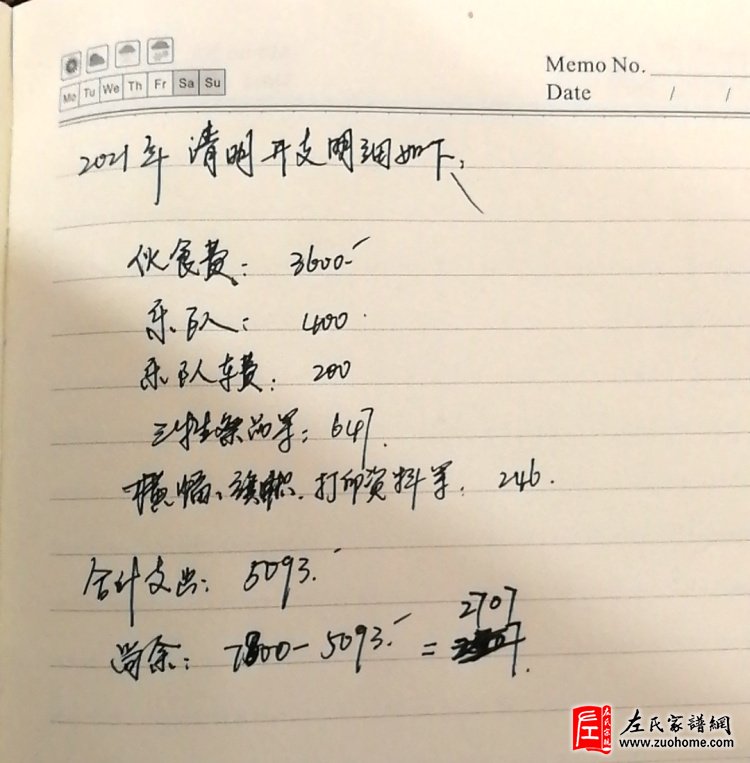 Mo Tu We Th Fr Sa Su
Memo No.
Date / /
2021年清明开支明细如下:
伙食费: 3600.-
乐队: 400.
乐队车费: 200
三牲祭品等: 647.
横幅、旗帜、打印资料等: 246.
合计支出: 5093.-
2707
尚余: 7800-5093.- =
左氏宗亲
左氏家譜網
www.zuohome.com